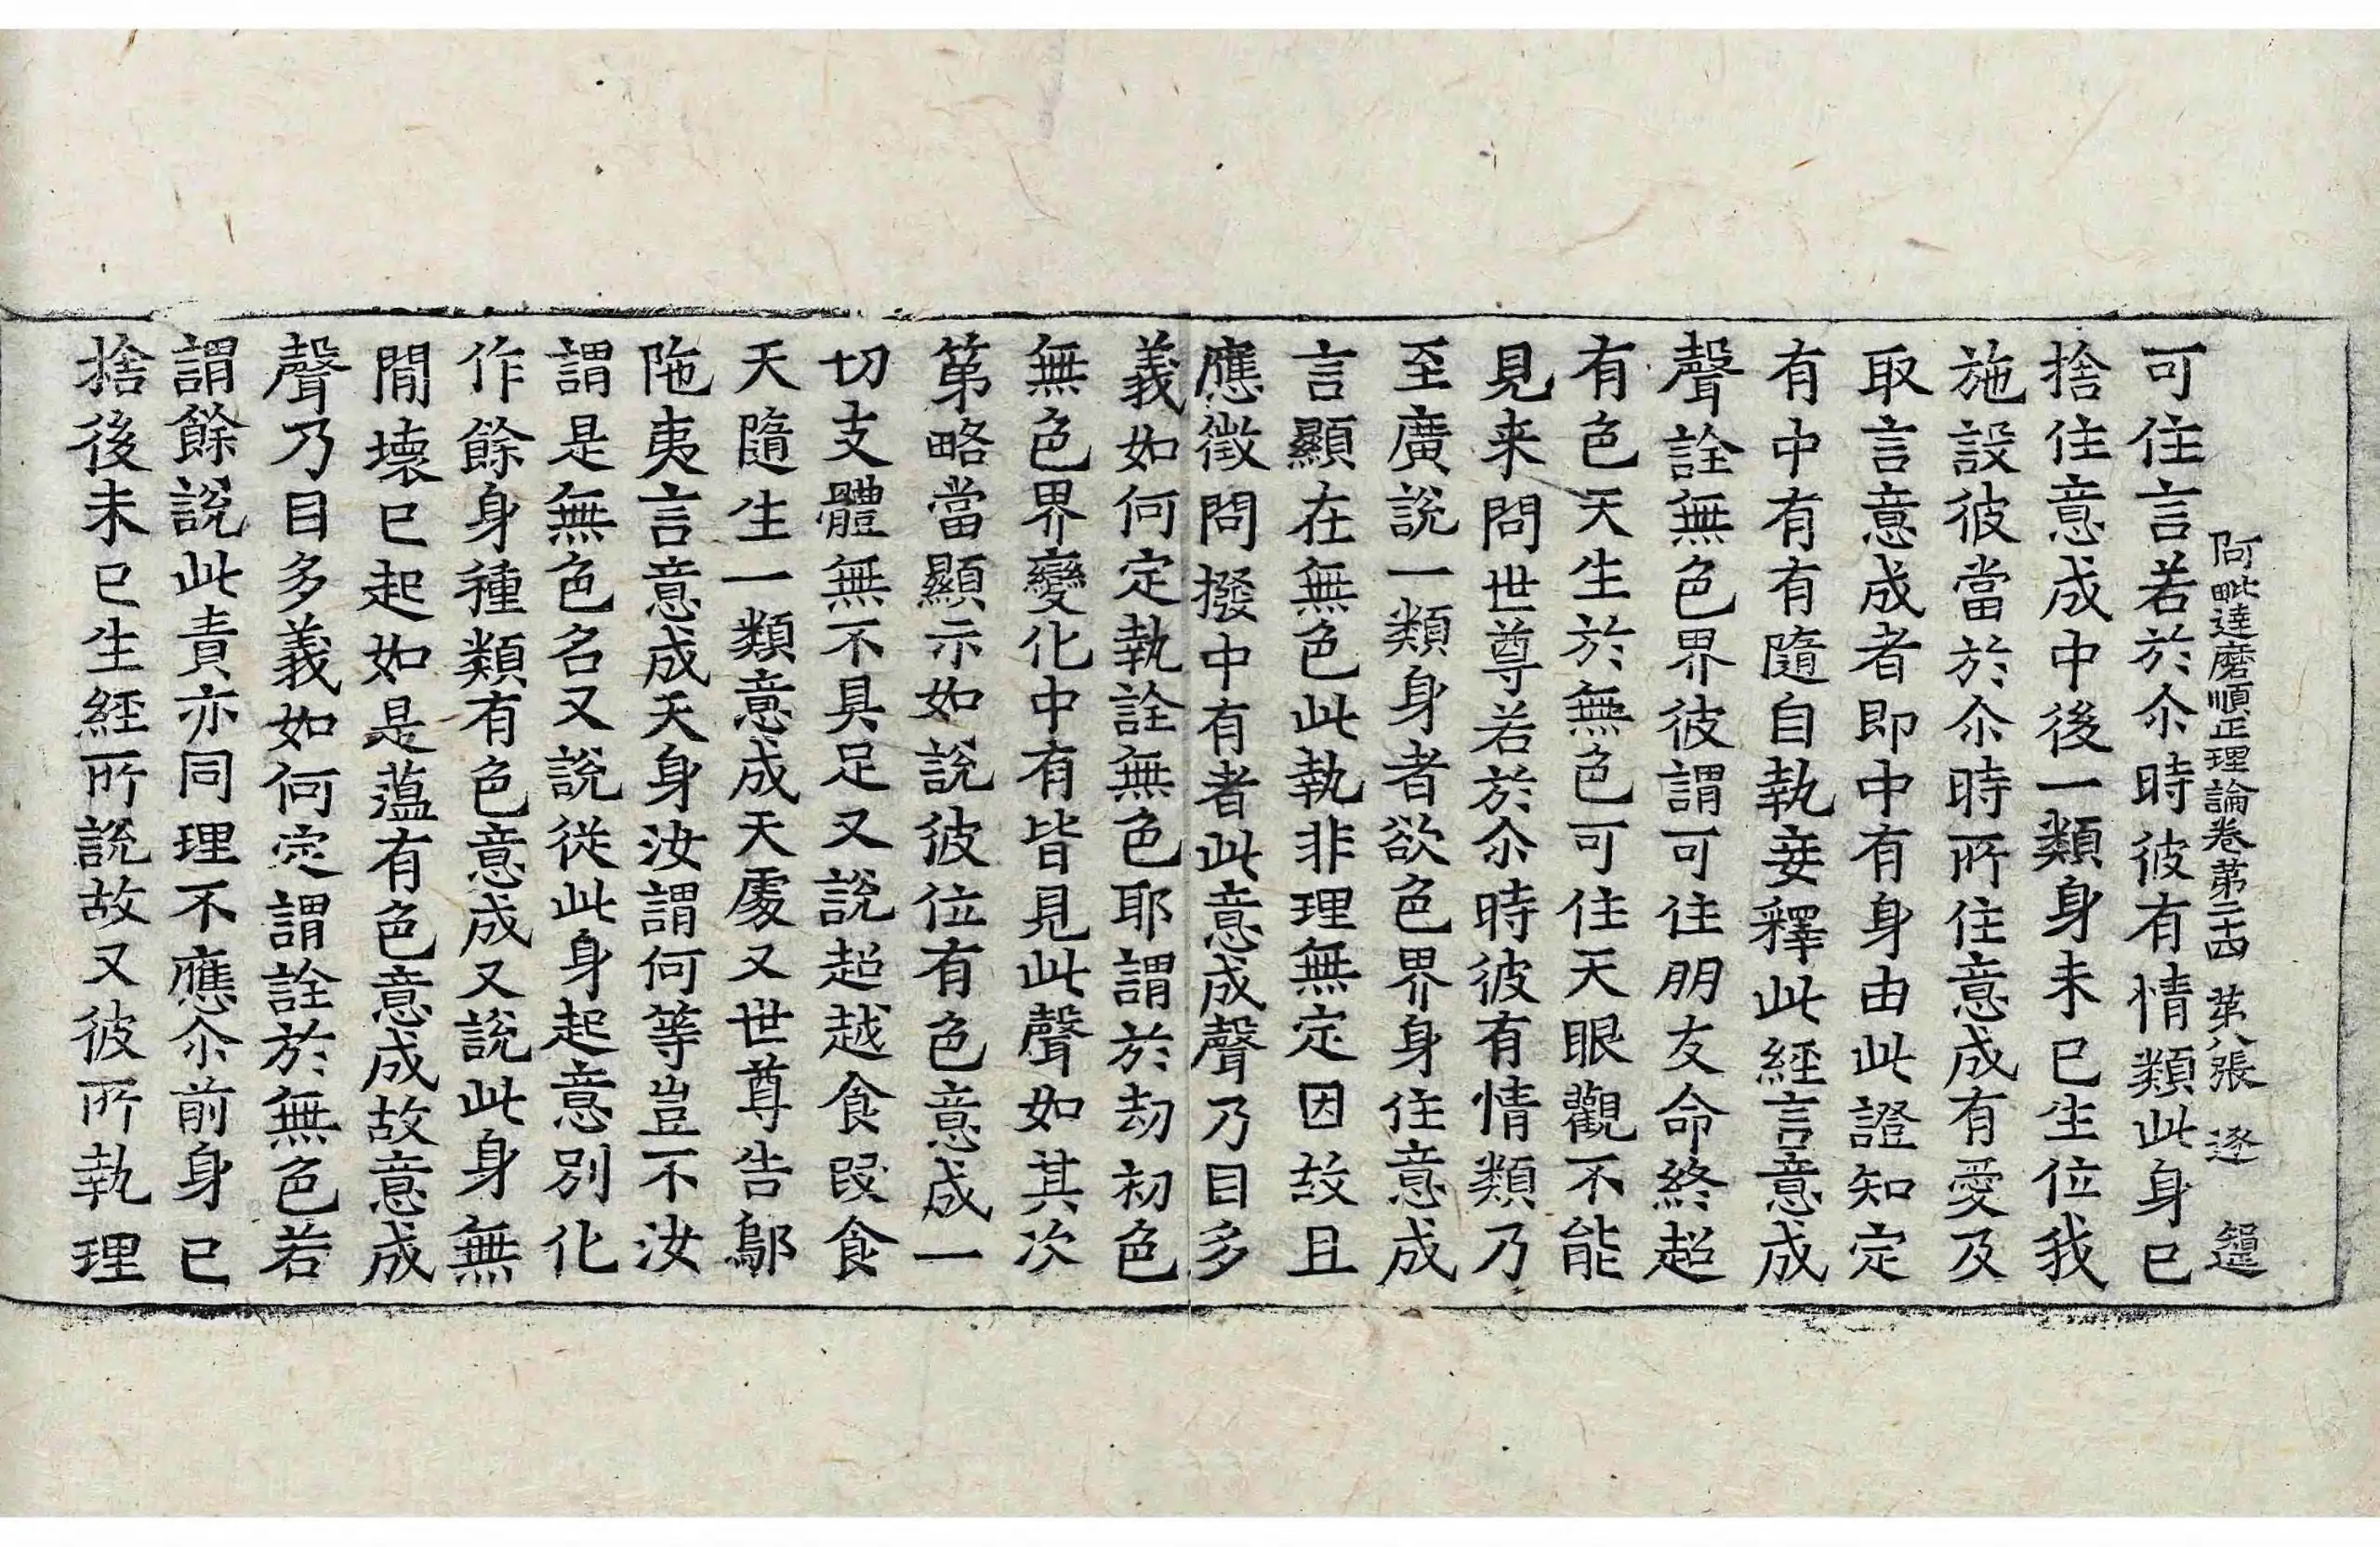 阿毗達磨順正理論卷第二十四 第八張 逐
可住言若於尒時彼有情類此身已
捨住意成中後一類身未已生位我
施設彼當於尒時所住意成有愛及
取言意成者即中有身由此證知定
有中有有隨自執妄釋此經言意成
聲詮無色界彼謂可住朋友命終超
有色天生於無色可住天眼觀不能
見来問世尊若於尒時彼有情類乃
至廣說一類身者欲色界身住意成
言顯在無色此執非理無定因故且
應徵問撥中有者此意成聲乃目多
義如何定執詮無色耶謂於劫初色
無色界變化中有皆見此聲如其次
第略當顯示如說彼位有色意成一
切支體無不具足又說超越食段食
天隨生一類意成天處又世尊告鄔
陁夷言意成天身汝謂何等豈不汝
謂是無色名又說從此身起意別化
作餘身種類有色意成又說此身無
閒壞已起如是蕰有色意成故意成
聲乃目多義如何定謂詮於無色若
謂餘說此責亦同理不應尒前身已
捨後未已生經所說故又彼所執理